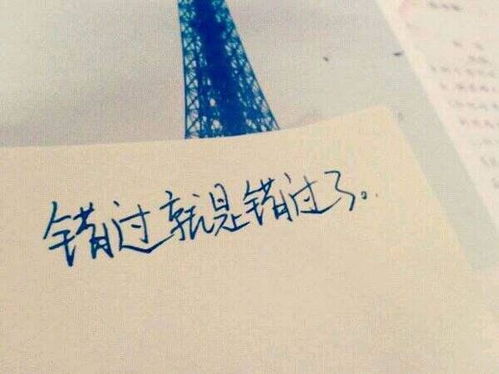 错过就是错过了。